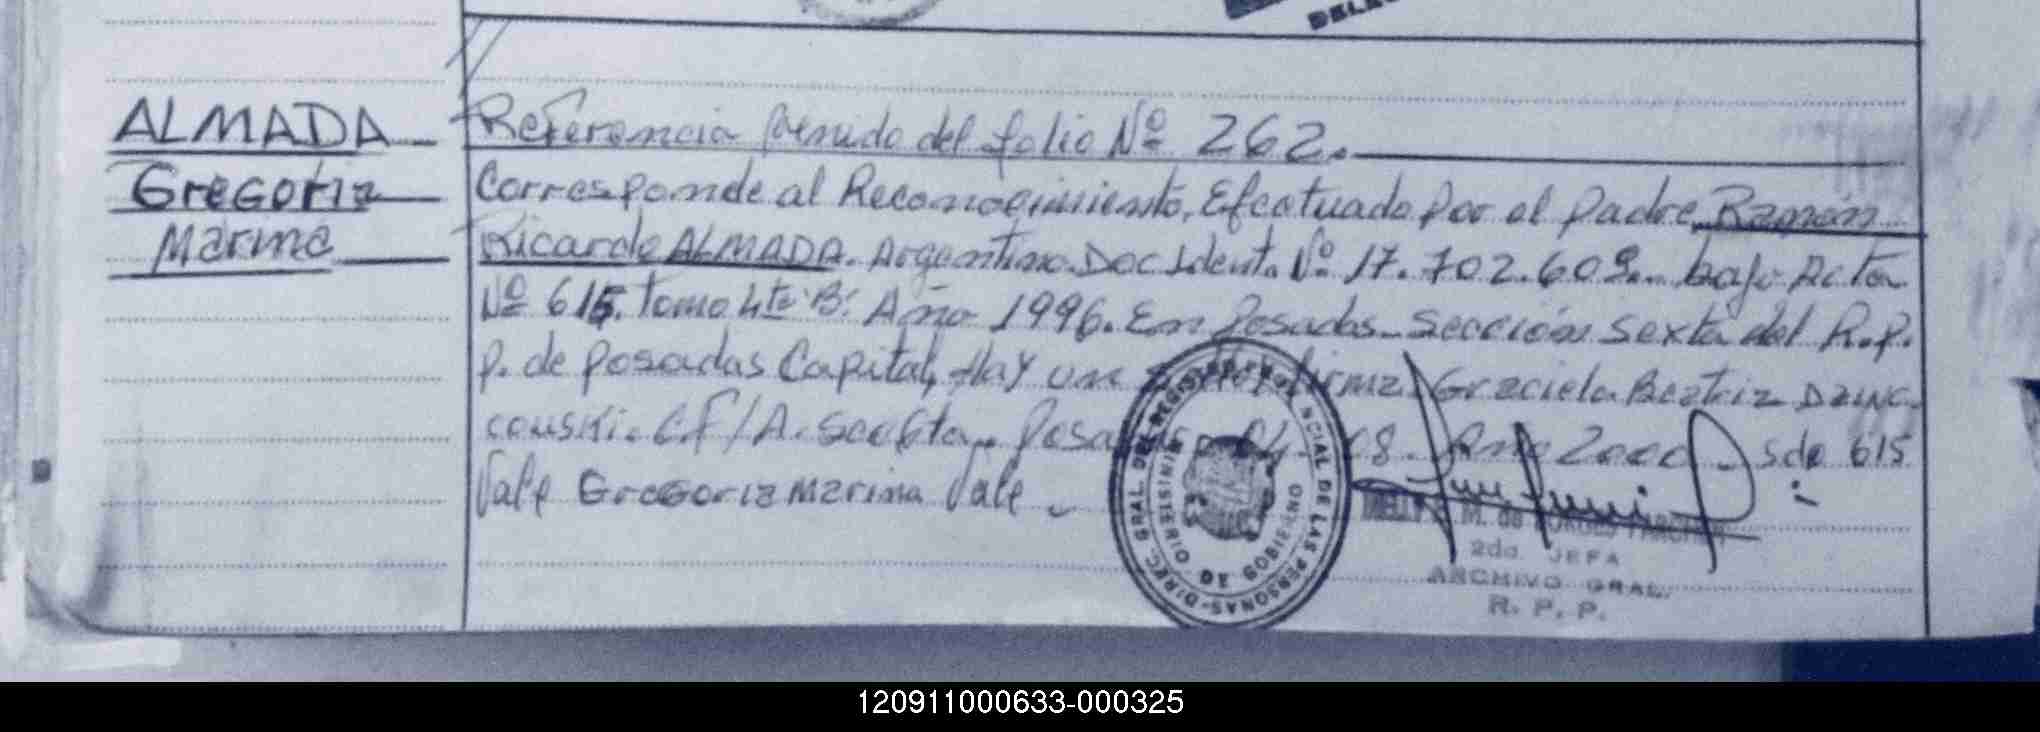 DELE
ALMADA
Gregoria
Marina
Referencia Venida del folio Nº 262.
Corresponde al Reconocimiento, Efectuado Por el Padre, Ramón
Ricardo ALMADA. Argentino. Doc Ident. Nº 17.702.609. bajo Acta
Nº 615. Tomo 4to "B". Año 1996. En Posadas. Sección Sexta del R.P.
P. de Posadas Capital, Hay un firma Graciela Beatriz
C.F/A. Posadas 08. Año 2000. Sdo 615
Vale Gregoria Marina Vale
DIREC. GRAL. DEL REGISTRO PROVINCIAL DE LAS PERSONAS
MINISTERIO DE GOBIERNO
M. de
2da. JEFA
ARCHIVO GRAL.
R. P. P.
120911000633-000325